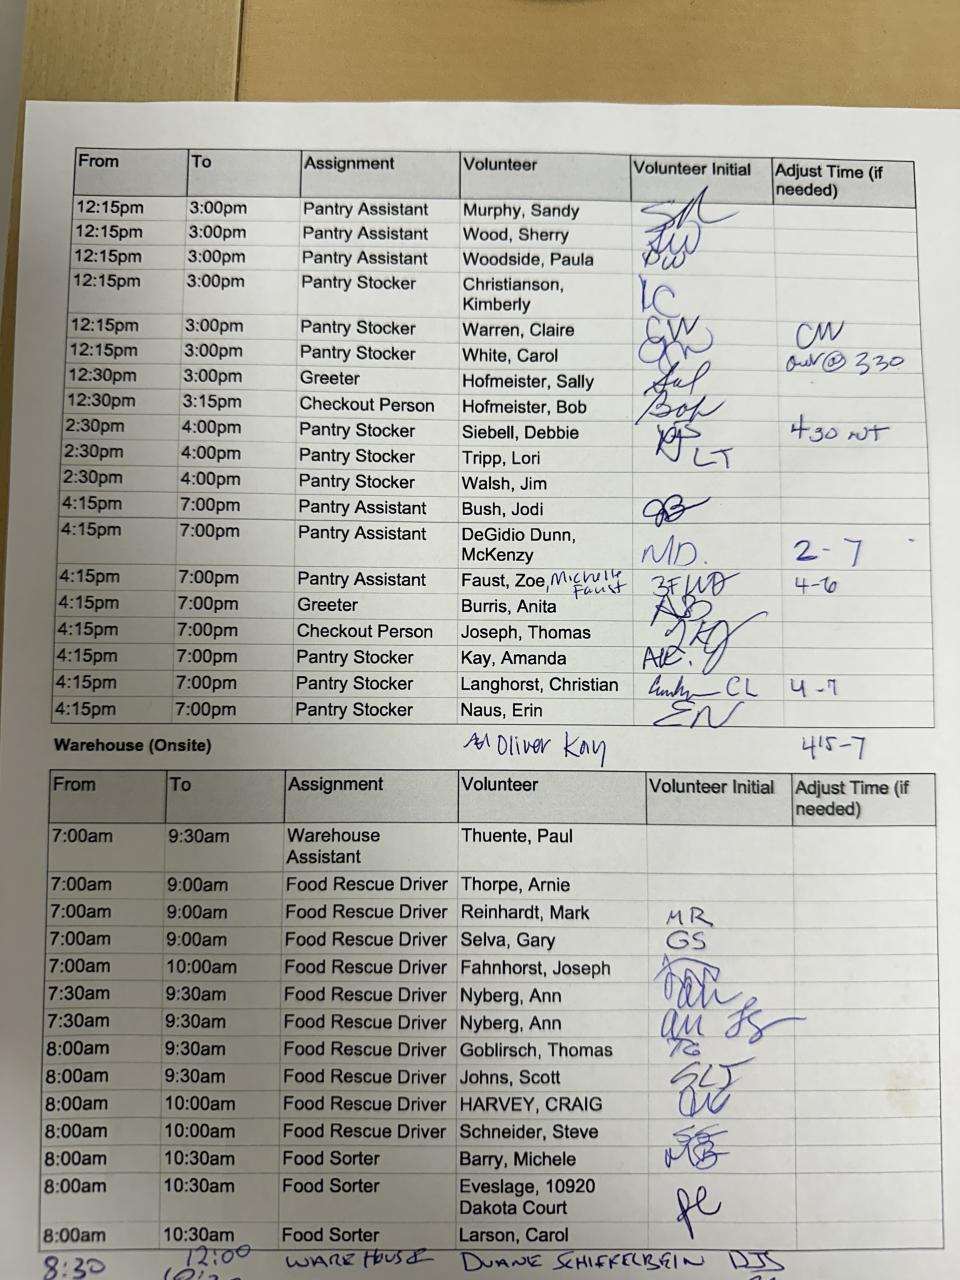 From To Assignment Volunteer Volunteer Initial Adjust Time (if needed)
12:15pm 3:00pm Pantry Assistant Murphy, Sandy SM
12:15pm 3:00pm Pantry Assistant Wood, Sherry SW
12:15pm 3:00pm Pantry Assistant Woodside, Paula PW
12:15pm 3:00pm Pantry Stocker Christianson, Kimberly KC
12:15pm 3:00pm Pantry Stocker Warren, Claire CW CW
12:15pm 3:00pm Pantry Stocker White, Carol CW out @ 330
12:30pm 3:00pm Greeter Hofmeister, Sally Sal
12:30pm 3:15pm Checkout Person Hofmeister, Bob Bob
2:30pm 4:00pm Pantry Stocker Siebell, Debbie DS 430
2:30pm 4:00pm Pantry Stocker Tripp, Lori LT
2:30pm 4:00pm Pantry Stocker Walsh, Jim
4:15pm 7:00pm Pantry Assistant Bush, Jodi JB
4:15pm 7:00pm Pantry Assistant DeGidio Dunn, McKenzy MD. 2-7
4:15pm 7:00pm Pantry Assistant Faust, Zoe, Michelle Faust ZF 4-6
4:15pm 7:00pm Greeter Burris, Anita AB
4:15pm 7:00pm Checkout Person Joseph, Thomas
4:15pm 7:00pm Pantry Stocker Kay, Amanda AK.
4:15pm 7:00pm Pantry Stocker Langhorst, Christian CL 4-7
4:15pm 7:00pm Pantry Stocker Naus, Erin EN
Warehouse (Onsite) Oliver Kay 415-7
From To Assignment Volunteer Volunteer Initial Adjust Time (if needed)
7:00am 9:30am Warehouse Assistant Thuente, Paul
7:00am 9:00am Food Rescue Driver Thorpe, Arnie
7:00am 9:00am Food Rescue Driver Reinhardt, Mark MR
7:00am 9:00am Food Rescue Driver Selva, Gary GS
7:00am 10:00am Food Rescue Driver Fahnhorst, Joseph
7:30am 9:30am Food Rescue Driver Nyberg, Ann
7:30am 9:30am Food Rescue Driver Nyberg, Ann an
8:00am 9:30am Food Rescue Driver Goblirsch, Thomas TG
8:00am 9:30am Food Rescue Driver Johns, Scott SLJ
8:00am 10:00am Food Rescue Driver HARVEY, CRAIG
8:00am 10:00am Food Rescue Driver Schneider, Steve SS
8:00am 10:30am Food Sorter Barry, Michele MB
8:00am 10:30am Food Sorter Eveslage, 10920 Dakota Court
8:00am 10:30am Food Sorter Larson, Carol
8:30 12:00 WAREHOUSE DUANE SCHIEFELBEIN DJS